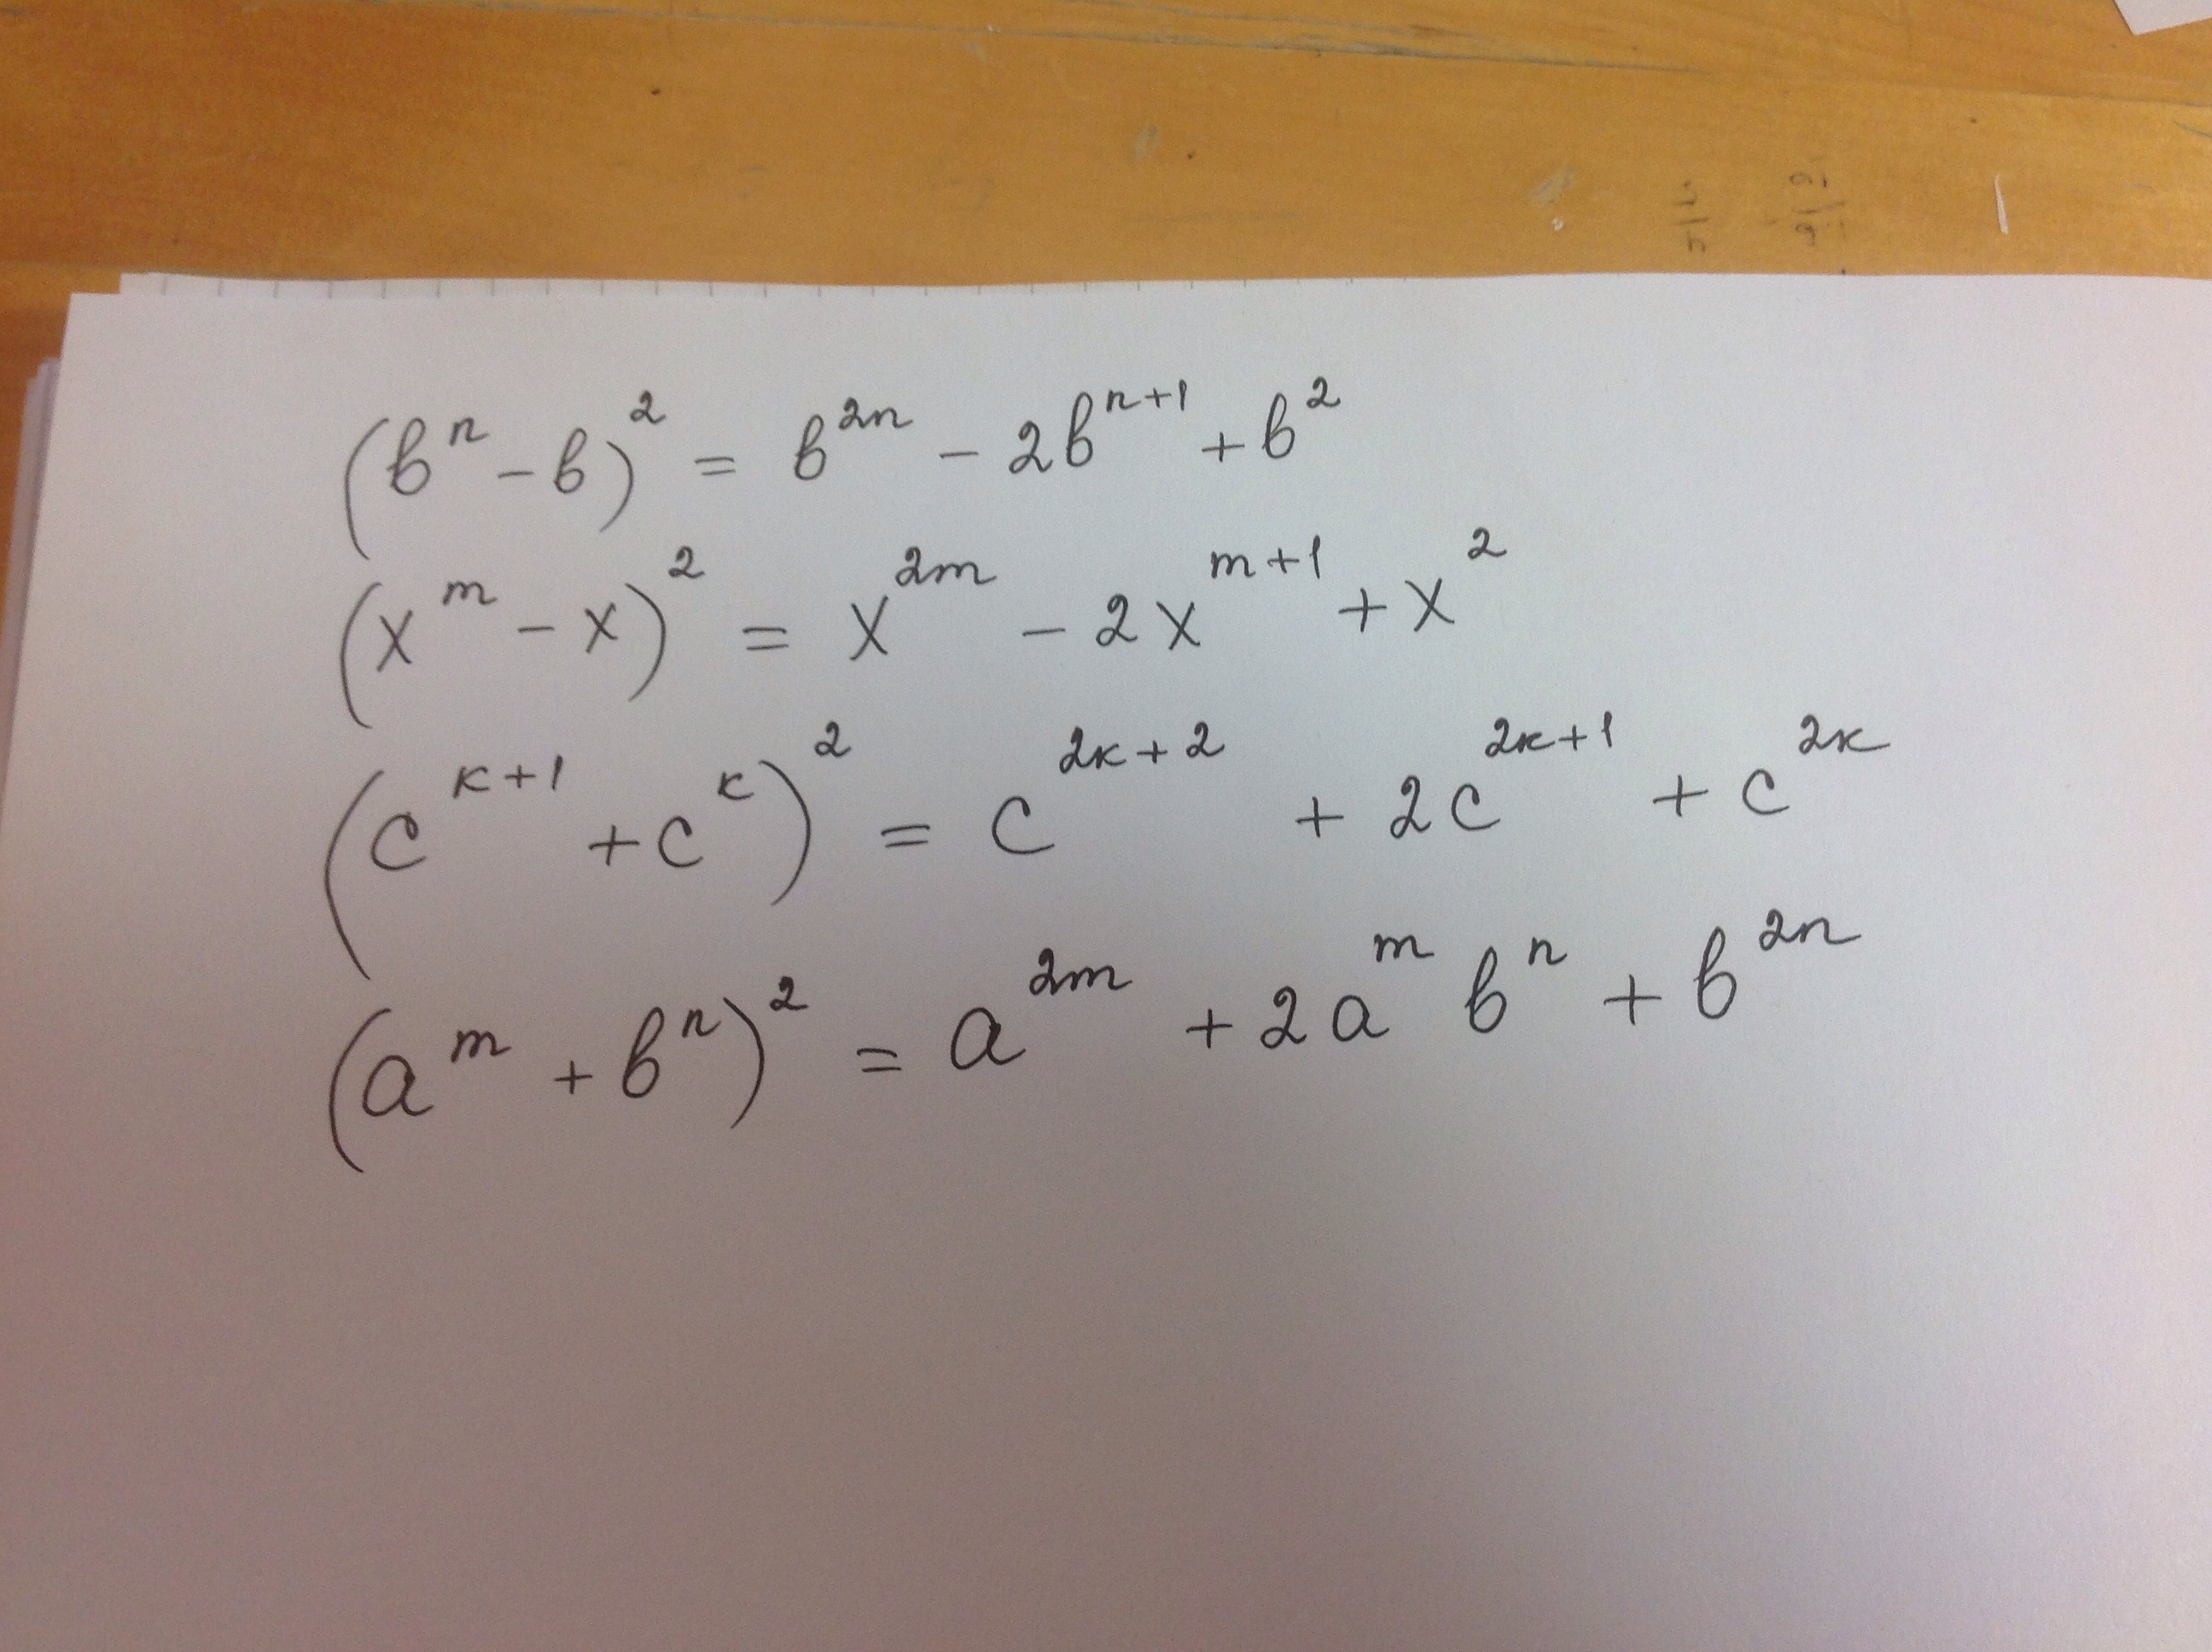 (b^n - b)^2 = b^{2n} - 2b^{n+1} + b^2
(x^m - x)^2 = x^{2m} - 2x^{m+1} + x^2
(c^{k+1} + c^k)^2 = c^{2k+2} + 2c^{2k+1} + c^{2k}
(a^m + b^n)^2 = a^{2m} + 2a^m b^n + b^{2n}